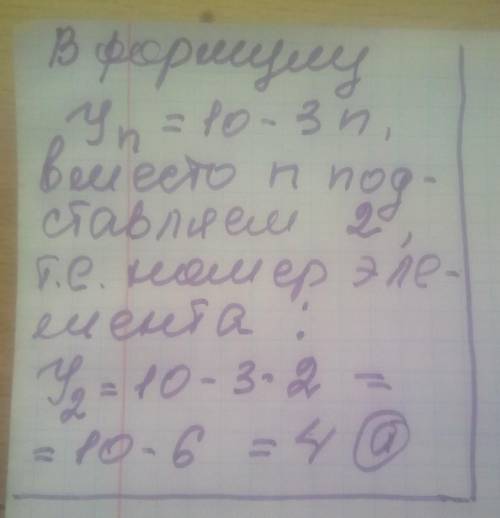 В формулу
Уn = 10 - 3n,
вместо n под-
ставляем 2,
т.е. номер эле-
мента :
У2 = 10 - 3 · 2 =
= 10 - 6 = 4 а